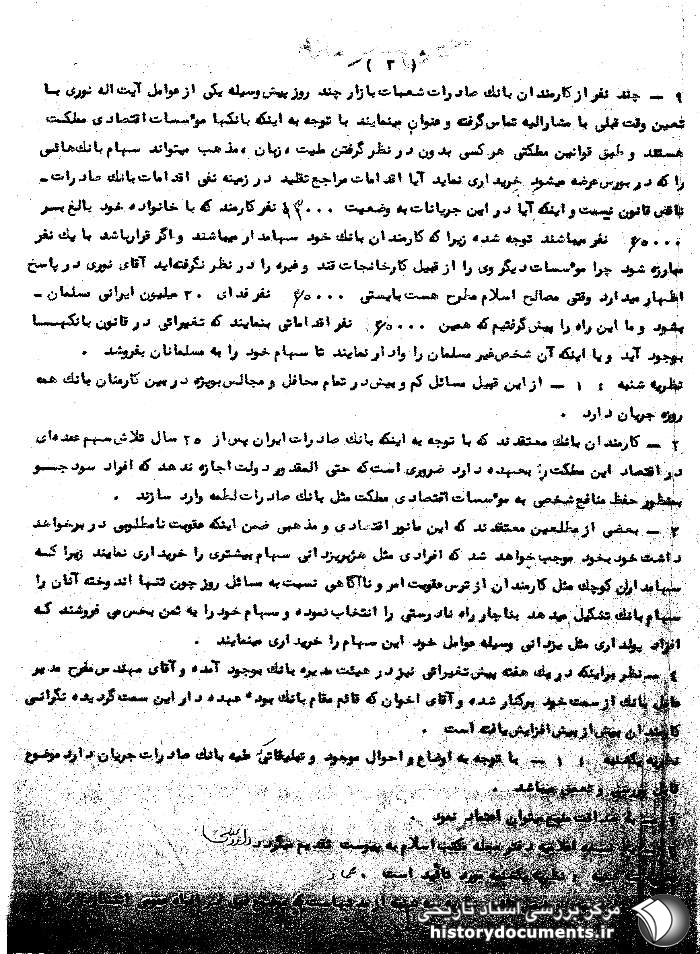 ( ۳ )
۹ – چند نفر از کارمندان بانک صادرات شعبات بازار چند روز پیش وسیله یکی از عوامل آیت اله نوری با
تعیین وقت قبلی با مشارالیه تماس گرفته و عنوان مینمایند با توجه به اینکه بانکها مؤسسات اقتصادی مملکت
هستند و طبق قوانین مملکتی هر کسی بدون در نظر گرفتن ملیت ، زبان ، مذهب میتواند سهام بانک هائی
را که در بورس عرضه میشود خریداری نماید آیا اقدامات مراجع تقلید در زمینه نفی اقدامات بانک صادرات –
ناقض قانون نیست و اینکه آیا در این جریانات به وضعیت نفر کارمند که با خانواده خود بالغ بر
۶۰۰۰۰ نفر میباشند توجه شده زیرا که کارمندان بانک خود سهامدار میباشند و اگر قرار باشد با یک نفر
مبارزه شود چرا مؤسسات دیگر وی را از قبیل کارخانجات قند و غیره را در نظر نگرفته‌اید آقای نوری در پاسخ
اظهار میدارد وقتی مصالح اسلام مطرح هست بایستی ۶۰۰۰۰ نفر فدای ۳۰ میلیون ایرانی مسلمان –
بشود و ما این راه را پیش گرفتیم که همین ۶۰۰۰۰ نفر اقداماتی بنمایند که تغییراتی در قانون بانکها
بوجود آید و یا اینکه آن شخص غیر مسلمان را وادار نمایند تا سهام خود را به مسلمانان بفروشد .
نظریه شنبه : ۱ – از این قبیل مسائل کم و بیش در تمام محافل و مجالس بویژه در بین کارمندان بانک همه
روزه جریان دارد .
۲ – کارمندان بانک معتقدند که با توجه به اینکه بانک صادرات ایران پس از ۲۵ سال تلاش سهم عمده‌ای
در اقتصاد این مملکت را بعهده دارد ضروری است که حتی المقدور دولت اجازه ندهد که افراد سودجو
بمنظور حفظ منافع شخصی به مؤسسات اقتصادی مملکت مثل بانک صادرات لطمه وارد سازند .
۳ – بعضی از مطلعین معتقدند که این مانور اقتصادی و مذهبی ضمن اینکه عقوبت نامطلوبی در بر خواهد
داشت خود بخود موجب خواهد شد که افرادی مثل هژبر یزدانی سهام بیشتری را خریداری نمایند زیرا که
سهامداران کوچک مثل کارمندان از ترس عقوبت امر و ناآگاهی نسبت به مسائل روز چون تنها اندوخته آنان را
سهام بانک تشکیل میدهد بناچار راه نادرستی را انتخاب نموده و سهام خود را به ثمن بخس می فروشند که
افراد پولداری مثل یزدانی وسیله عوامل خود این سهام را خریداری مینمایند .
۴ – نظر براینکه در یک هفته پیش تغییراتی نیز در هیئت مدیره بانک بوجود آمده و آقای مهندس مفرح مدیر
عامل بانک از سمت خود برکنار شده و آقای اخوان که قائم مقام بانک بوده عهده دار این سمت گردیده نگرانی
کارمندان بیش از پیش افزایش یافته است .
نظریه یکشنبه : ۱ – با توجه به اوضاع و احوال موجود و تبلیغاتی که علیه بانک صادرات جریان دارد موضوع
قابل بررسی و تعمق میباشد .
به صداقت منبع میتوان اعتبار نمود .
اعلامیه دفتر مجله مکتب اسلام به پیوست تقدیم میگردد
نظریه یکشنبه مورد تائید است .
مرکز بررسی اسناد تاریخی
historydocuments.ir